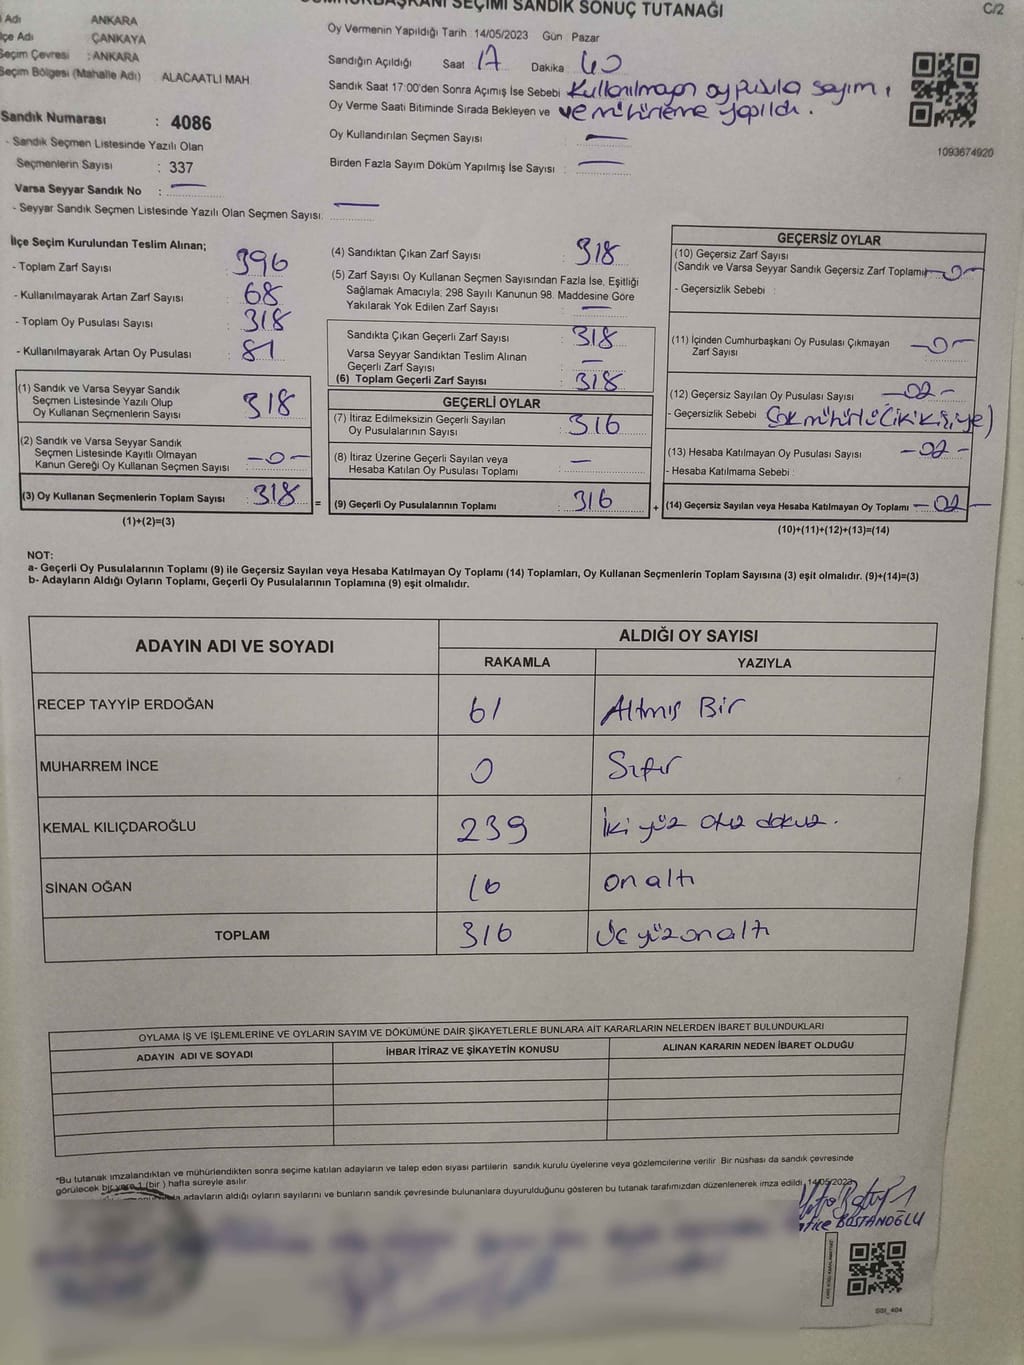 CUMHURBAŞKANI SEÇİMİ SANDIK SONUÇ TUTANAĞI
C/2
Adı ANKARA
lçe Adı ÇANKAYA
Seçim Çevresi : ANKARA
Seçim Bölgesi (Mahalle Adı) ALACAATLI MAH.
Sandık Numarası : 4086
- Sandık Seçmen Listesinde Yazılı Olan
Seçmenlerin Sayısı : 337
Varsa Seyyar Sandık No : —
- Seyyar Sandık Seçmen Listesinde Yazılı Olan Seçmen Sayısı: —
Oy Vermenin Yapıldığı Tarih 14/05/2023 Gün Pazar
Sandığın Açıldığı Saat 17 Dakika 40
Sandık Saat 17:00'den Sonra Açımış İse Sebebi Kullanılmayan oy pusula sayım,
Oy Verme Saati Bitiminde Sırada Bekleyen ve ve mühürleme yapıldı.
Oy Kullandırılan Seçmen Sayısı : —
Birden Fazla Sayım Döküm Yapılmış İse Sayısı : —
1093674920
İlçe Seçim Kurulundan Teslim Alınan;
- Toplam Zarf Sayısı : 396
- Kullanılmayarak Artan Zarf Sayısı : 68
- Toplam Oy Pusulası Sayısı : 318
- Kullanılmayarak Artan Oy Pusulası : 81
(1) Sandık ve Varsa Seyyar Sandık
Seçmen Listesinde Yazılı Olup
Oy Kullanan Seçmenlerin Sayısı : 318
(2) Sandık ve Varsa Seyyar Sandık
Seçmen Listesinde Kayıtlı Olmayan
Kanun Gereği Oy Kullanan Seçmen Sayısı -0-
(3) Oy Kullanan Seçmenlerin Toplam Sayısı : 318 =
(1)+(2)=(3)
(4) Sandıktan Çıkan Zarf Sayısı : 318
(5) Zarf Sayısı Oy Kullanan Seçmen Sayısından Fazla İse, Eşitliği
Sağlamak Amacıyla; 298 Sayılı Kanunun 98. Maddesine Göre
Yakılarak Yok Edilen Zarf Sayısı : —
Sandıkta Çıkan Geçerli Zarf Sayısı : 318
Varsa Seyyar Sandıktan Teslim Alınan
Geçerli Zarf Sayısı : —
(6) Toplam Geçerli Zarf Sayısı : 318
GEÇERLİ OYLAR
(7) İtiraz Edilmeksizin Geçerli Sayılan
Oy Pusulalarının Sayısı : 316
(8) İtiraz Üzerine Geçerli Sayılan veya
Hesaba Katılan Oy Pusulası Toplamı : —
(9) Geçerli Oy Pusulalarının Toplamı : 316 +
GEÇERSİZ OYLAR
(10) Geçersiz Zarf Sayısı
(Sandık ve Varsa Seyyar Sandık Geçersiz Zarf Toplamı) -0-
- Geçersizlik Sebebi :
(11) İçinden Cumhurbaşkanı Oy Pusulası Çıkmayan
Zarf Sayısı -0-
(12) Geçersiz Sayılan Oy Pusulası Sayısı -02-
- Geçersizlik Sebebi : Çok mühürlü (iki kişiye)
(13) Hesaba Katılmayan Oy Pusulası Sayısı -02-
- Hesaba Katılmama Sebebi :
(14) Geçersiz Sayılan veya Hesaba Katılmayan Oy Toplamı -02-
(10)+(11)+(12)+(13)=(14)
NOT:
a- Geçerli Oy Pusulalarının Toplamı (9) ile Geçersiz Sayılan veya Hesaba Katılmayan Oy Toplamı (14) Toplamları, Oy Kullanan Seçmenlerin Toplam Sayısına (3) eşit olmalıdır. (9)+(14)=(3)
b- Adayların Aldığı Oyların Toplamı, Geçerli Oy Pusulalarının Toplamına (9) eşit olmalıdır.
ADAYIN ADI VE SOYADI ALDIĞI OY SAYISI
RAKAMLA YAZIYLA
RECEP TAYYİP ERDOĞAN 61 Altmış Bir
MUHARREM İNCE 0 Sıfır
KEMAL KILIÇDAROĞLU 239 İki yüz otuz dokuz.
SİNAN OĞAN 16 on altı
TOPLAM 316 Üç yüz on altı
OYLAMA İŞ VE İŞLEMLERİNE VE OYLARIN SAYIM VE DÖKÜMÜNE DAİR ŞİKAYETLERLE BUNLARA AİT KARARLARIN NELERDEN İBARET BULUNDUKLARI
ADAYIN ADI VE SOYADI İHBAR İTİRAZ VE ŞİKAYETİN KONUSU ALINAN KARARIN NEDEN İBARET OLDUĞU
*Bu tutanak imzalandıktan ve mühürlendikten sonra seçime katılan adayların ve talep eden siyasi partilerin sandık kurulu üyelerine veya gözlemcilerine verilir. Bir nüshası da sandık çevresinde
görülecek bir yere 1 (bir) hafta süreyle asılır.
adayların aldığı oyların sayılarını ve bunların sandık çevresinde bulunanlara duyurulduğunu gösteren bu tutanak tarafımızdan düzenlenerek imza edildi. 14/05/2023
BOSTANOĞLU